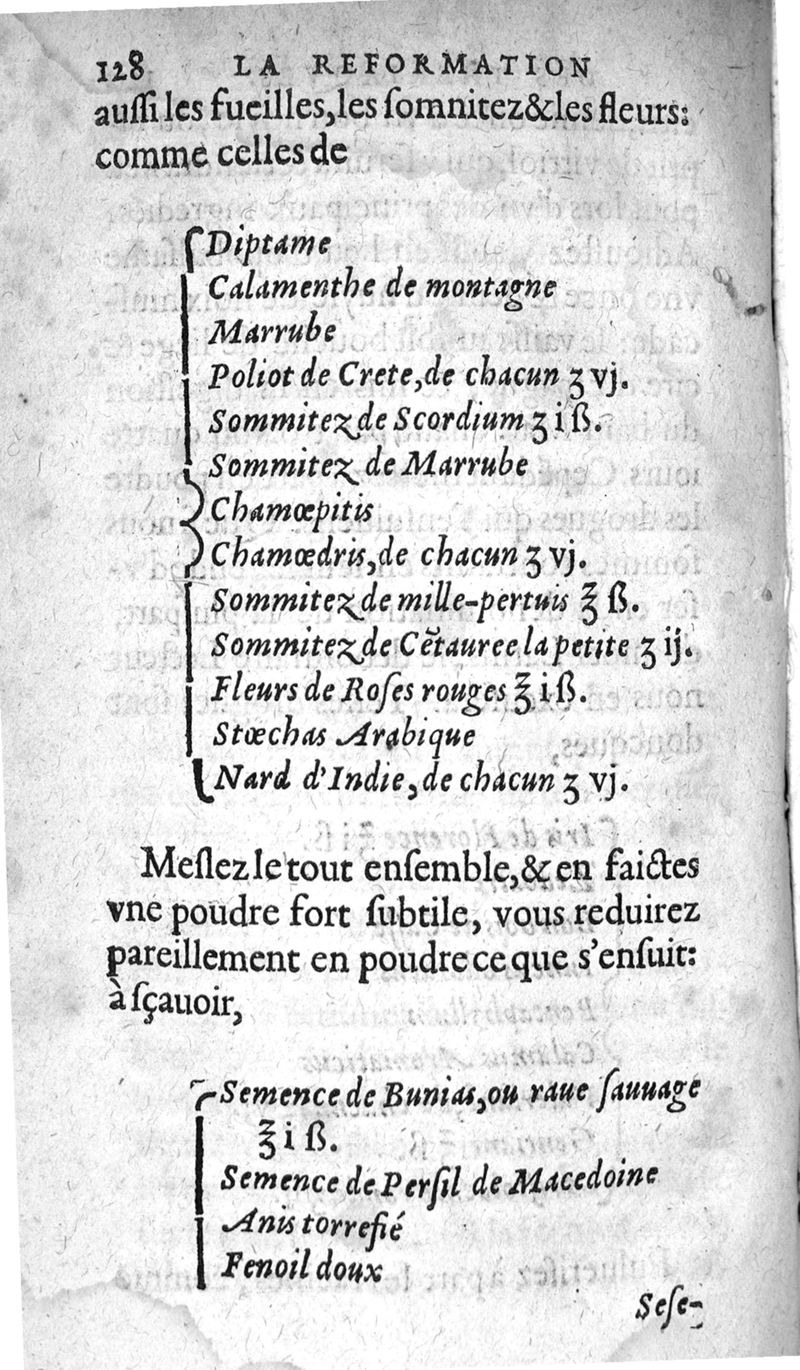 128 LA REFORMATION
auſſi les fueilles, les ſomnitez & les fleurs:
comme celles de
Diptame
Calamenthe de montagne
Marrube
Poliot de Crete, de chacun ʒ vj.
Sommitez de Scordium ʒ i ß.
Sommitez de Marrube
Chamœpitis
Chamœdris, de chacun ʒ vj.
Sommitez de mille-pertuis ℥ ß.
Sommitez de Cẽtauree la petite ʒ ij.
Fleurs de Roſes rouges ℥ i ß.
Stœchas Arabique
Nard d'Indie, de chacun ʒ vj.
Meſlez le tout enſemble, & en faictes
vne poudre fort ſubtile, vous reduirez
pareillement en poudre ce que s'enſuit:
à ſçauoir,
Semence de Bunias, ou raue ſauuage
℥ i ß.
Semence de Perſil de Macedoine
Anis torrefié
Fenoil doux
Seſe-